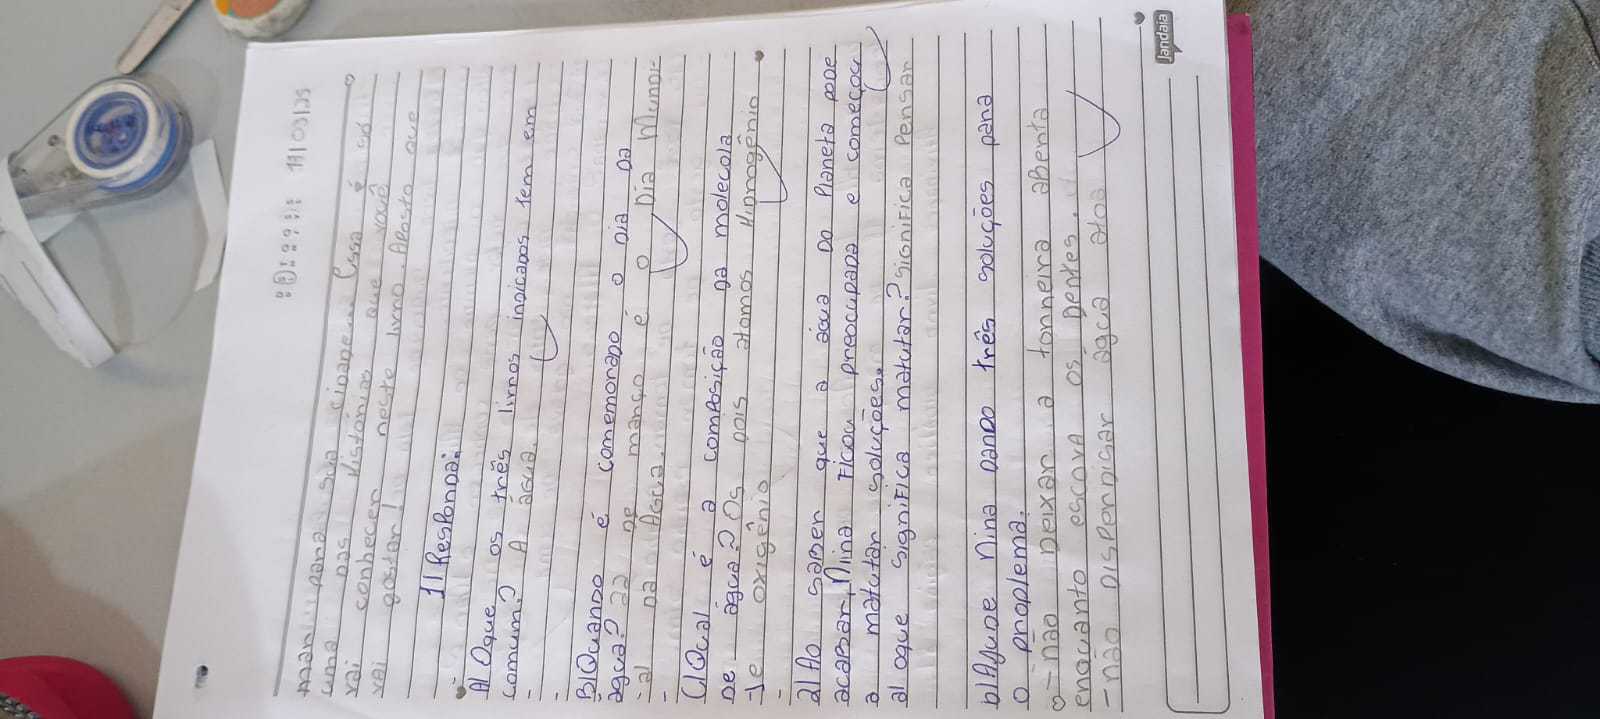 D S T Q Q S S 11/03/25
mar para sua cidade. Essa é só
uma das histórias que você
vai conhecer neste livro. Aposto que
vai gostar!
1) Responda:
A) Oque os três livros indicados tem em
comum? A água.
B) Quando é comemorado o dia da
água? 22 de março é o Dia Mundi-
al da Água.
C) Qual é a composição da molecola
de água? Os dois atomos Hidrogênio
e oxigênio
2) Ao saber que a água do Planeta pode
acabar, Nina ficou preocupada e começou
a matutar soluções.
a) oque significa matutar? Significa Pensar
b) Ajude Nina dando três soluções para
o problema.
- não deixar a torneira aberta
enquanto escova os dentes.
- não disperdiçar água atoa
Jandaia